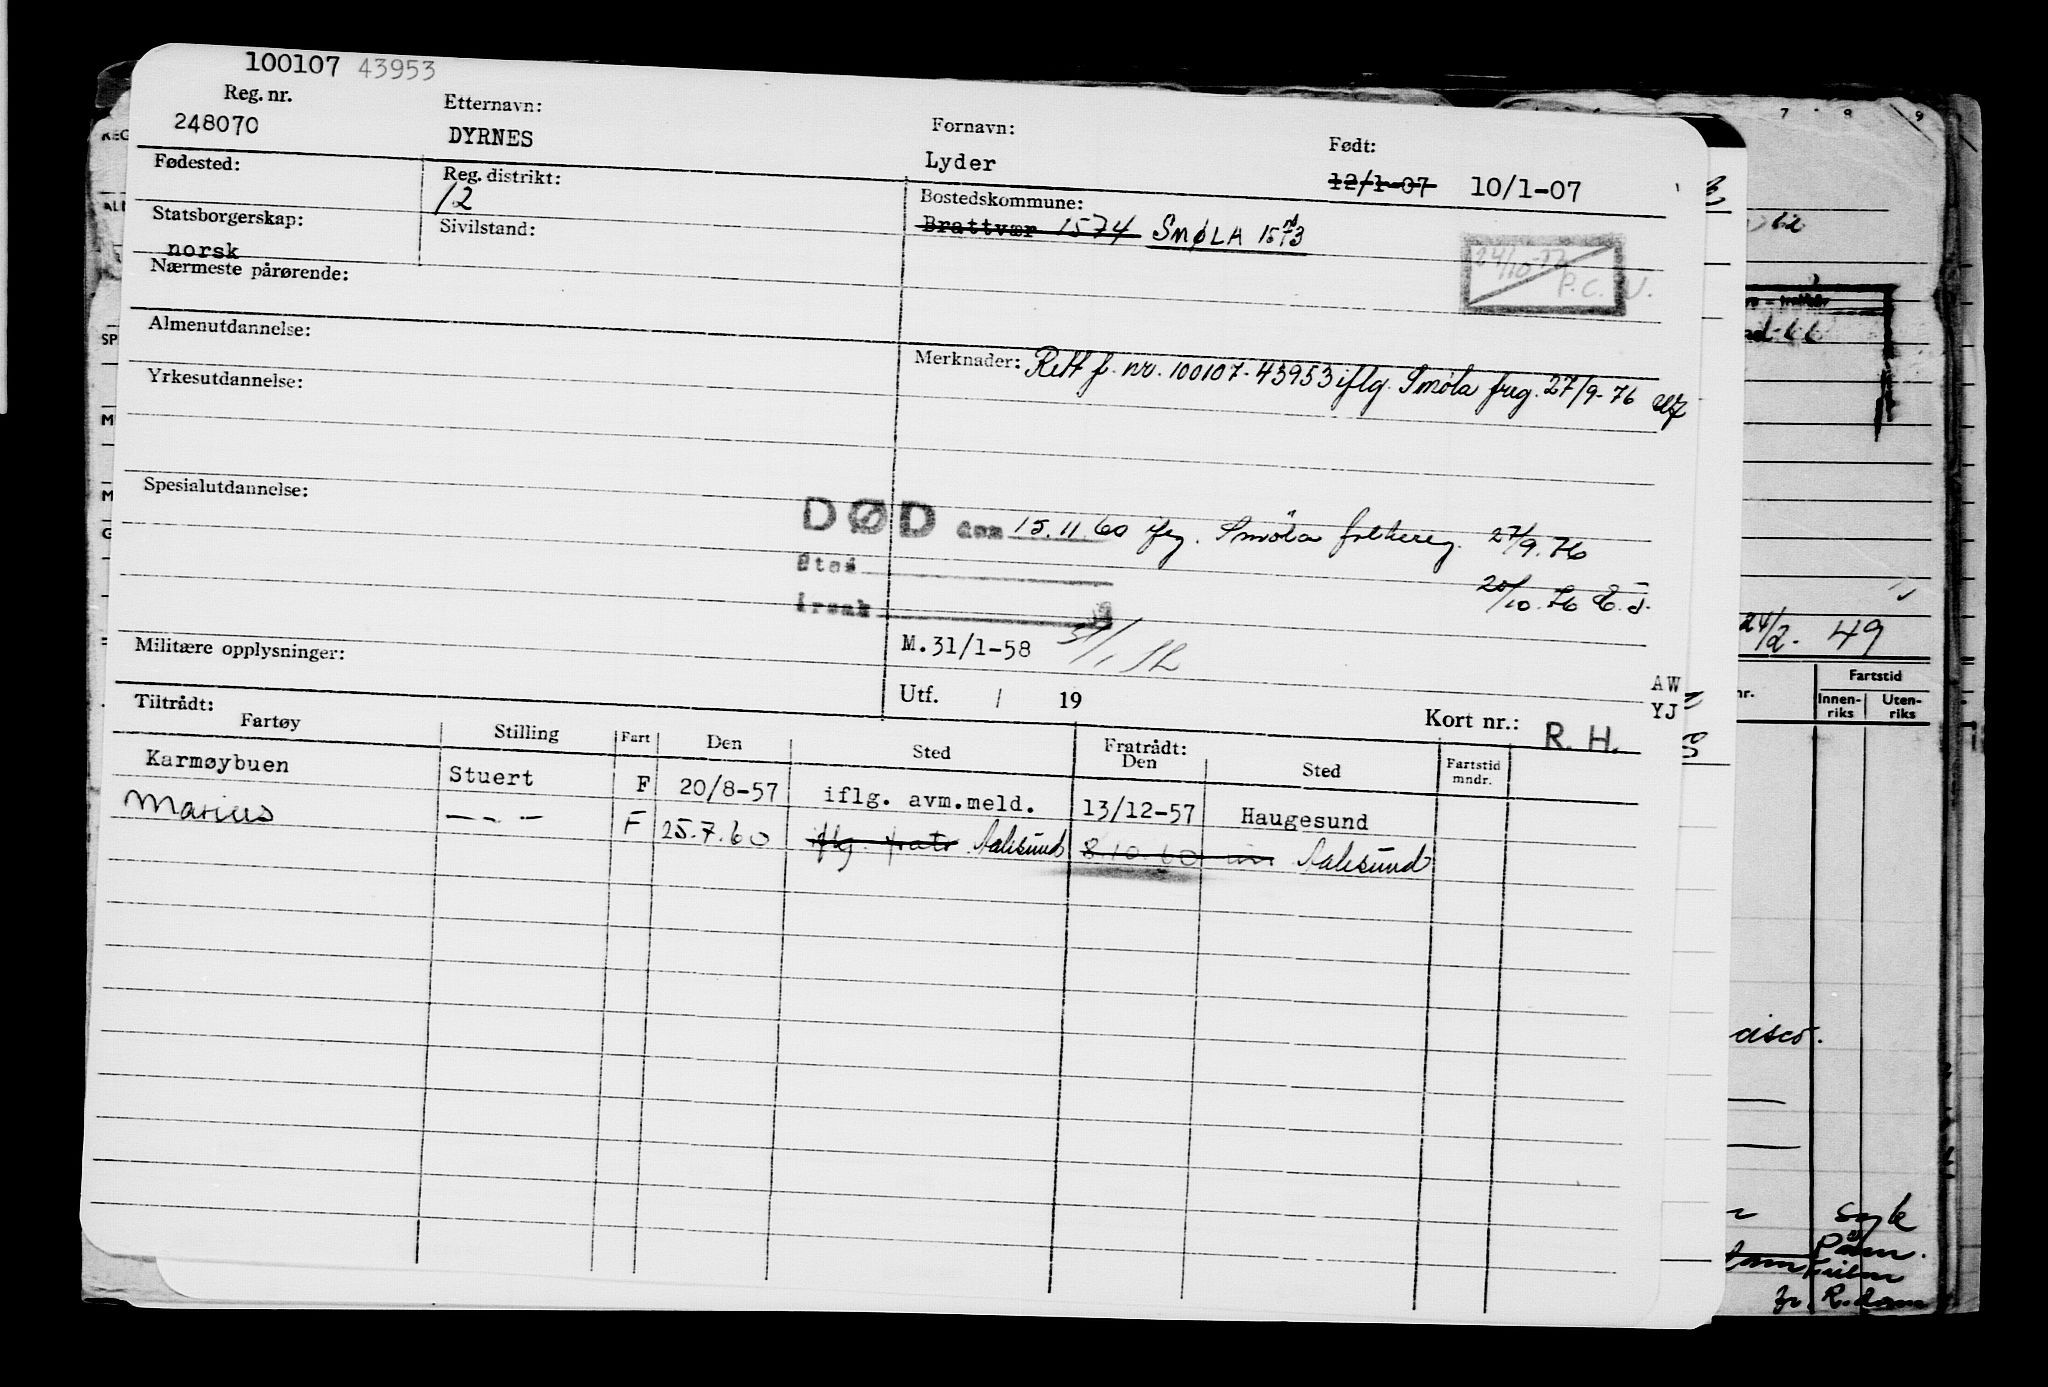 100107 43953
Reg. nr.
248070
Etternavn:
DYRNES
Fornavn:
Lyder
Født:
12/1-07 10/1-07
Fødested:
Reg. distrikt:
12
Bostedskommune:
Brattvær 1574 SMØLA 1573
Statsborgerskap:
norsk
Sivilstand:
24/10-77
P.C.N.
Nærmeste pårørende:
Almenutdannelse:
Merknader: Rett f. nr. 100107-43953 iflg. Smøla freg. 27/9-76
Yrkesutdannelse:
Spesialutdannelse:
DØD den 15.11.60 Smøla folkereg. 27/9.76
Sted
20/10.76
Årsak
Militære opplysninger:
M.31/1-58
Utf. / 19
AW
YJ
Kort nr.: R. H.
Tiltrådt:
Fartøy Stilling Fart Den Sted Fratrådt: Den Sted Fartstid mndr.
Karmøybuen Stuert F 20/8-57 iflg. avm.meld. 13/12-57 Haugesund
Marius — - — F 25.7.60 iflg. fratr Aalesund 8.10.60 Aalesund
7 8 9
24/2- 49
nr.
Fartstid
Innen-riks Uten-riks
cisco.
syk